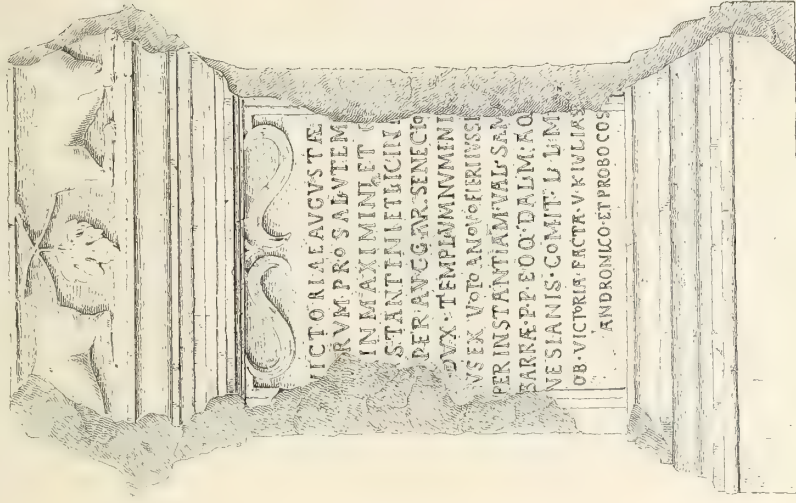 VICTORIAE AVGVSTÆ
RVM PRO SALVTEM
IN MAXIMINI ET C
STANTINI ET LICINI
PER AVGG AR SENECIO
DVX · TEMPLVM NVMINI
VS EX VOTO A NOVO FIERI IVSSI
PER INSTANTIAM VAL SAM
BARRÆ · P · P · EQQ · DALM · AQ
NESIANIS · COMIT · L L M
OB · VICTORIA · FACTA · V · K IVLIAS
ANDRONICO · ET PROBO COS